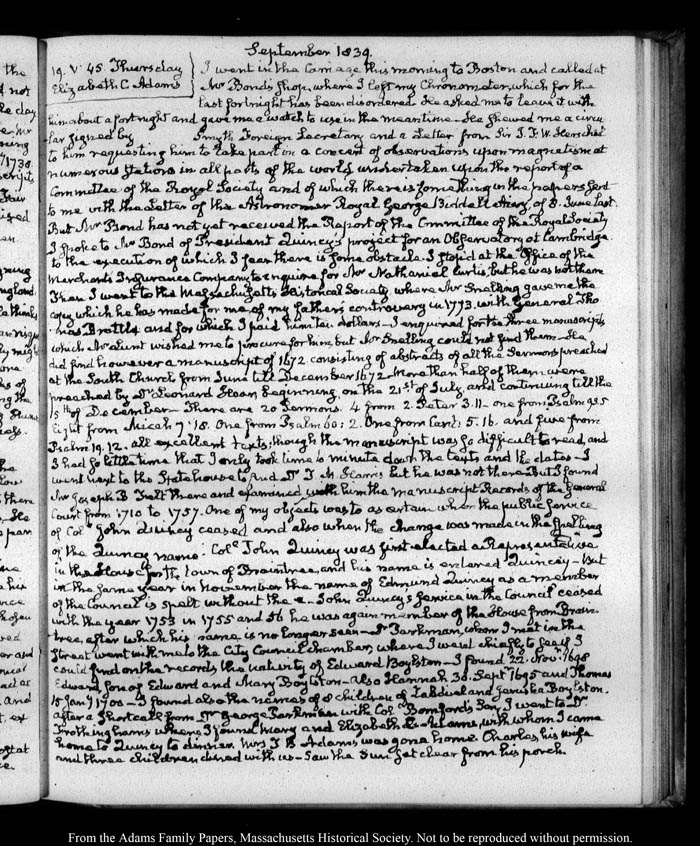 September 1839.
19. V. 45. Thursday
Elizabeth C. Adams
I went in the Carriage this morning to Boston and called at
Mr Bond's shop, where I left my Chronometer, which for the
last fortnight has been disordered. He asked me to leave it with
him about a fortnight and gave me a watch to use in the meantime. He shewed me a circu
lar signed by Smyth Foreign Secretary and a Letter from Sir J. F. W. Herschel
to him requesting him to take part in a concert of observations upon magnetism at
numerous stations in all parts of the world undertaken upon the report of a
Committee of the Royal Society and of which there is something in the papers sent
to me with the Letter of the Astronomer Royal George Biddell Airy, of 8. June last.
But Mr Bond has not yet received the Report of the Committee of the Royal Society
I spoke to Mr Bond of President Quincy's project for an Observatory at Cambridge.
to the execution of which I fear there is some obstacle. I stop'd at the Office of the
Merchants Insurance Company to enquire for Mr Nathaniel Curtis, but he was not there
Then I went to the Massachusetts Historical Society where Mr Snelling gave me the
copy which he has made for me of my father's controversy in 1773. with General Tho
mas Brattle and for which I paid him ten dollars. I enquired for the three manuscripts
which Mr Lunt wished me to procure for him but Mr Snelling could not find them. He
did find however a manuscript of 1672 consisting of abstracts of all the Sermons preached
at the South Church from June till December 1672. More than half of them were
preached by Dr Leonard Hoar beginning on the 21st of July, and continuing till the
15th of December. There are 20 Sermons. 4 from 2. Peter 3. 11. one from Psalm 93. 5
Eight from Micah 7. 18. One from Psalm 60: 2. One from Cant: 5. 16. and five from
Psalm 19. 12. all excellent texts; though the manuscript was so difficult to read, and
I had so little time that I only took time to minute down the texts and the dates. I
went next to the Statehouse to find Dr T. M. Harris but he was not there. But I found
Mr Joseph B Felt there and examined with him the manuscript Records of the General
Court from 1710 to 1757. One of my objects was to ascertain when the public service
of Coll John Quincy ceased and also when the change was made in the spelling
of the Quincy name. Coll John Quincy was first elected a Representative
in the House for the town of Braintree, and his name is entered Quincey. But
in the same year in November the name of Edmund Quincy as a member
of the Council is spelt without the e. John Quincy's service in the Council ceased
with the year 1753 in 1755 and 56 he was again member of the House from Brain
tree, after which his name is no longer seen. Dr Parkman, whom I met in the
street went with me to the City Council chamber, where I went chiefly to see if I
could find on the records the nativity of Edward Boylston. I found 22. Novr 1698
Edward, son of Edward and Mary Boylston. Also Hannah 30. Septr 1695 and Thomas
15 Jany 1700. I found also the names of 8 children of Zabdiel and Jerusha Boylston.
after a short call from Dr George Parkman with Coll Bomford's Son, I went to Dr
Frothingham's where I found Mary and Elizabeth C. Adams, with whom I came
home to Quincy to dinner. Mrs T. B. Adams was gone home. Charles, his wife
and three children dined with us. Saw the Sun set clear from his porch.
From the Adams Family Papers, Massachusetts Historical Society. Not to be reproduced without permission.